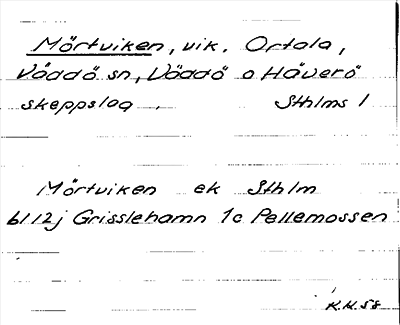 Mörtviken, vik. Ortala,
Väddö sn, Väddö o Häverö
skeppslag. Sthlms l
Mörtviken ek Sthlm
61 12j Grisslehamn 1c Pellemossen
K.H.58